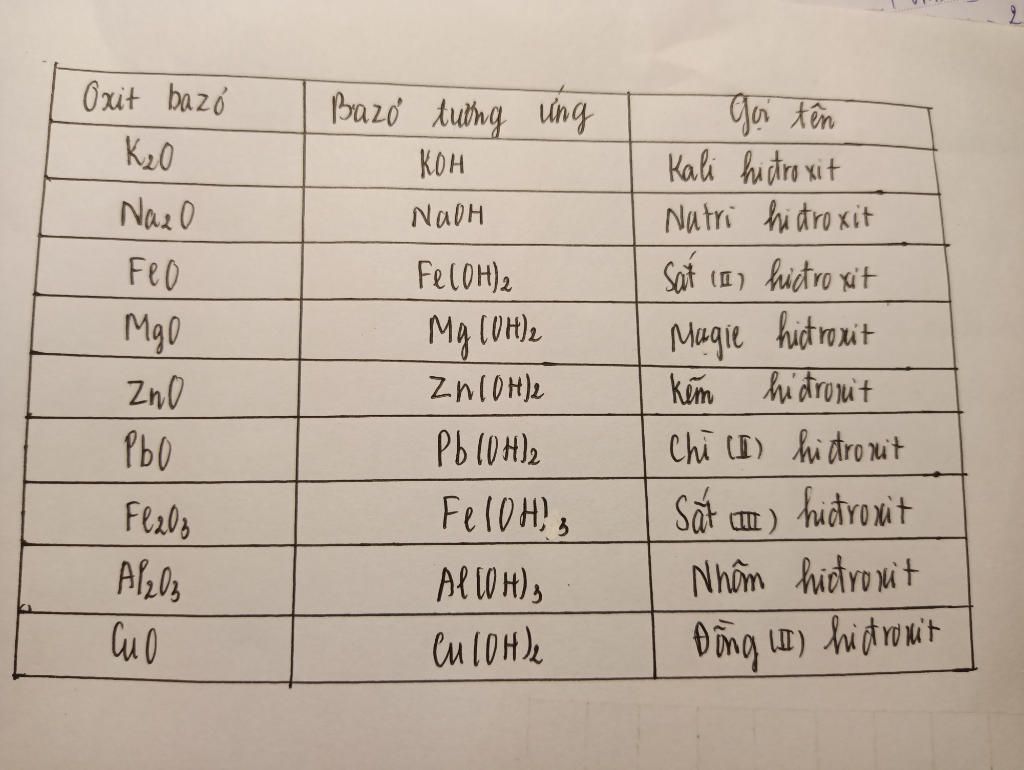 Oxit bazơ Bazơ tương ứng Gọi tên
K₂O KOH Kali hiđroxit
Na₂O NaOH Natri hiđroxit
FeO Fe(OH)₂ Sắt (II) hiđroxit
MgO Mg(OH)₂ Magie hiđroxit
ZnO Zn(OH)₂ Kẽm hiđroxit
PbO Pb(OH)₂ Chì (II) hiđroxit
Fe₂O₃ Fe(OH)₃ Sắt (III) hiđroxit
Al₂O₃ Al(OH)₃ Nhôm hiđroxit
CuO Cu(OH)₂ Đồng (II) hiđroxit